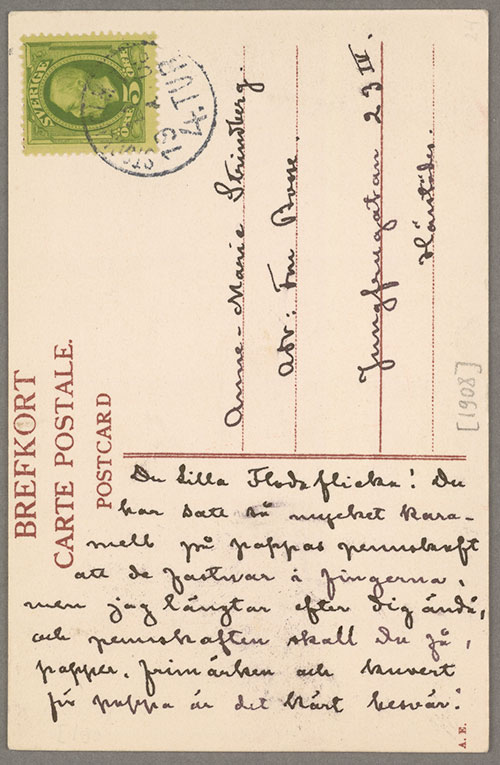 BREFKORT
CARTE POSTALE.
POSTCARD
SVERIGE
5
ÖRE
19
4.TUR
Anne-Marie Strindberg.
adr: Fru Bosse.
Jungfrugatan 23 IV.
Härstädes.
[1908]
Du Lilla Flodaflicka! Du
har satt så mycket kara-
mell på pappas pennskaft
att de fastnar i fingerna,
men jag längtar efter Dig ändå,
och pennskaften skall Du få,
papper, frimärken och kuvert
för pappa är det kärt besvär!
A. E.